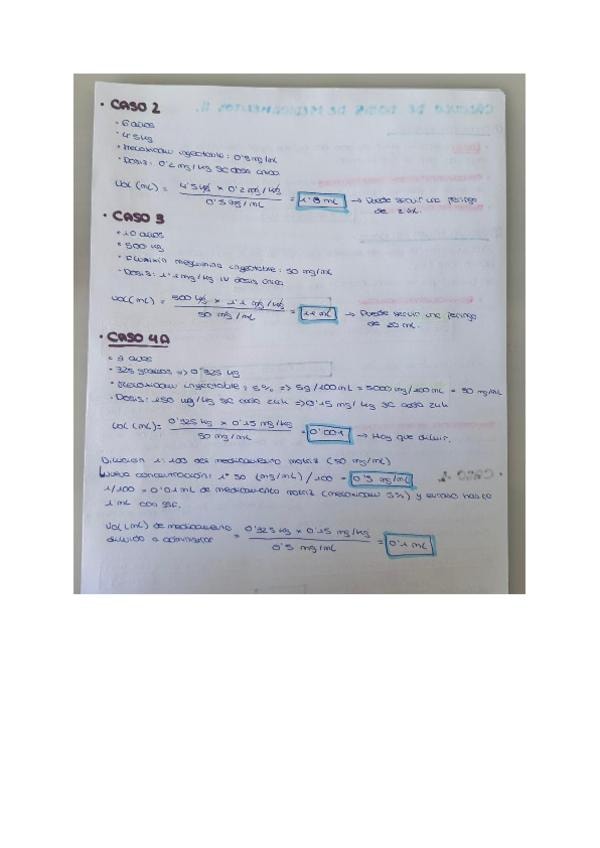 CÁLCULO DE DOSIS DE MEDICAMENTOS II.
· CASO 2
· 6 años
· 4'5 kg
· Meloxicam inyectable: 0'5 mg/mL
· Dosis: 0'2 mg/kg SC dosis única
Vol (mL) = 4'5 kg × 0'2 mg/kg / 0'5 mg/mL = 1'8 mL → Puede servir una jeringa
de 2 mL.
· CASO 3
· 10 años
· 500 kg
· Flunixin meglumina inyectable: 50 mg/mL
· Dosis: 1'1 mg/kg IV dosis única
Vol (mL) = 500 kg × 1'1 mg/kg / 50 mg/mL = 11 mL → Puede servir una jeringa
de 20 mL.
· CASO 4A
· 2 años
· 325 gramos => 0'325 kg
· Meloxicam inyectable: 5% => 5g/100mL = 5000 mg/100mL = 50 mg/mL
· Dosis: 150 ug/kg SC cada 24h => 0'15 mg/kg SC cada 24h
Vol (mL) = 0'325 kg × 0'15 mg/kg / 50 mg/mL = 0'001 → Hay que diluir.
Dilución 1:100 del medicamento matriz (50 mg/mL)
Nueva concentración: 1*50 (mg/mL)/100 = 0'5 mg/mL
1/100 = 0'01 mL de medicamento matriz (meloxicam 5%) y enraso hasta
1 mL con SSF.
Vol (mL) de medicamento
diluido a administrar = 0'325 kg × 0'15 mg/kg / 0'5 mg/mL = 0'1 mL